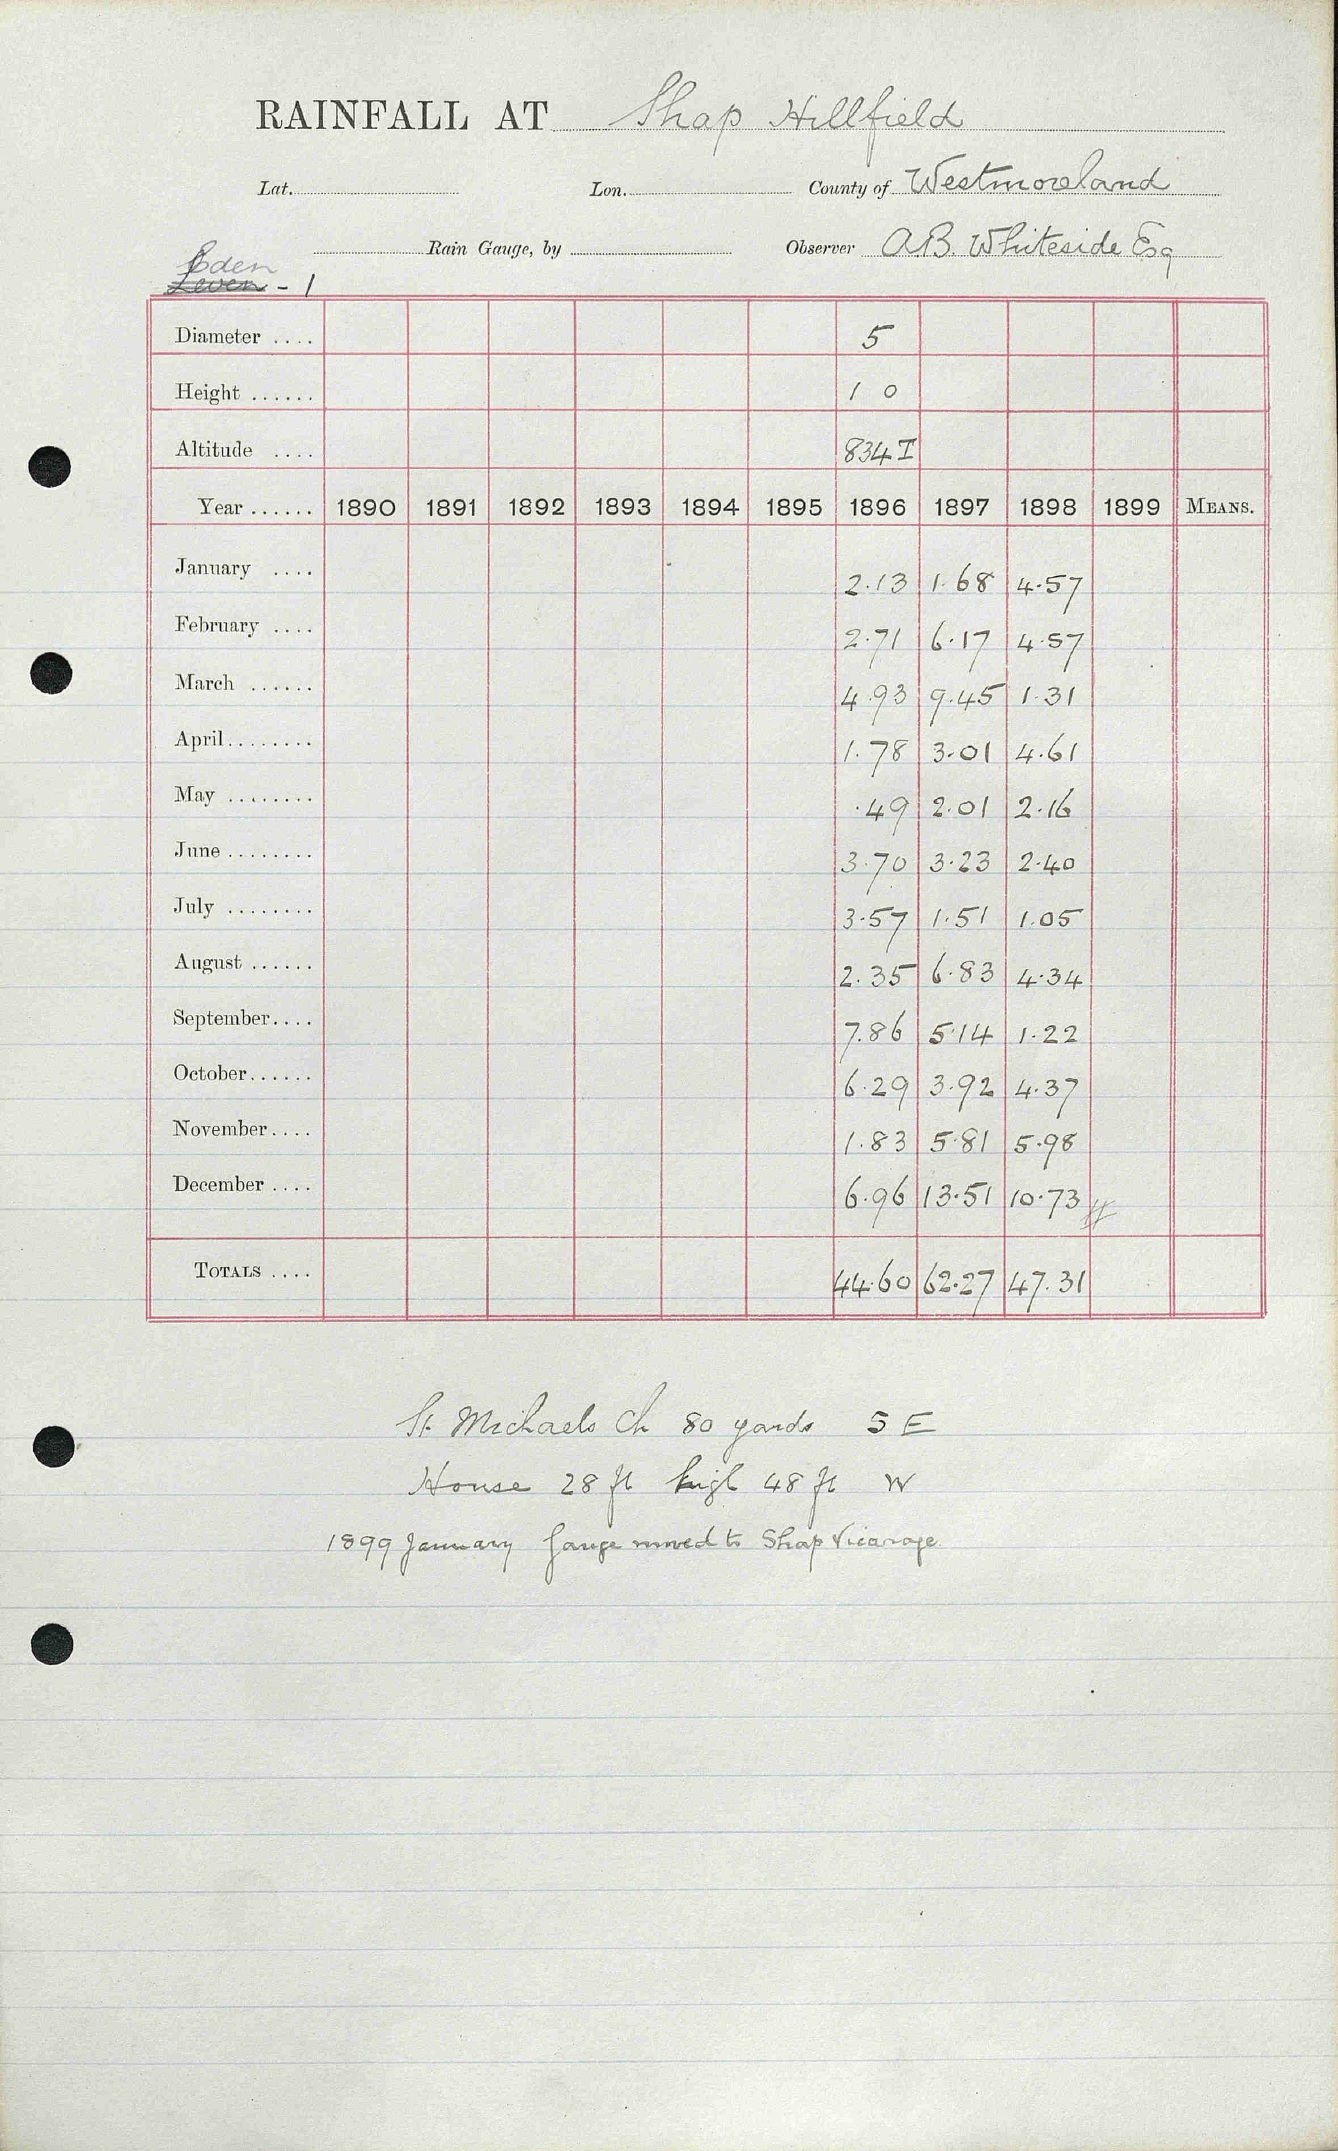 RAINFALL AT Shap Hillfield
Lat. Lon. County of Westmoreland
Rain Gauge, by Observer A.B. Whiteside Esq
Eden
Leven - 1
Diameter .... 5
Height ...... 1 0
Altitude .... 834 T
Year ...... 1890 1891 1892 1893 1894 1895 1896 1897 1898 1899 MEANS.
January .... 2.13 1.68 4.57
February .... 2.71 6.17 4.57
March ...... 4.93 9.45 1.31
April........ 1.78 3.01 4.61
May ........ .49 2.01 2.16
June ........ 3.70 3.23 2.40
July ........ 3.57 1.51 1.05
August ...... 2.35 6.83 4.34
September.... 7.86 5.14 1.22
October...... 6.29 3.92 4.37
November.... 1.83 5.81 5.98
December .... 6.96 13.51 10.73
TOTALS .... 44.60 62.27 47.31
St. Michaels Ch 80 yards S E
House 28 ft high 48 ft W
1899 January Gauge moved to Shap Vicarage